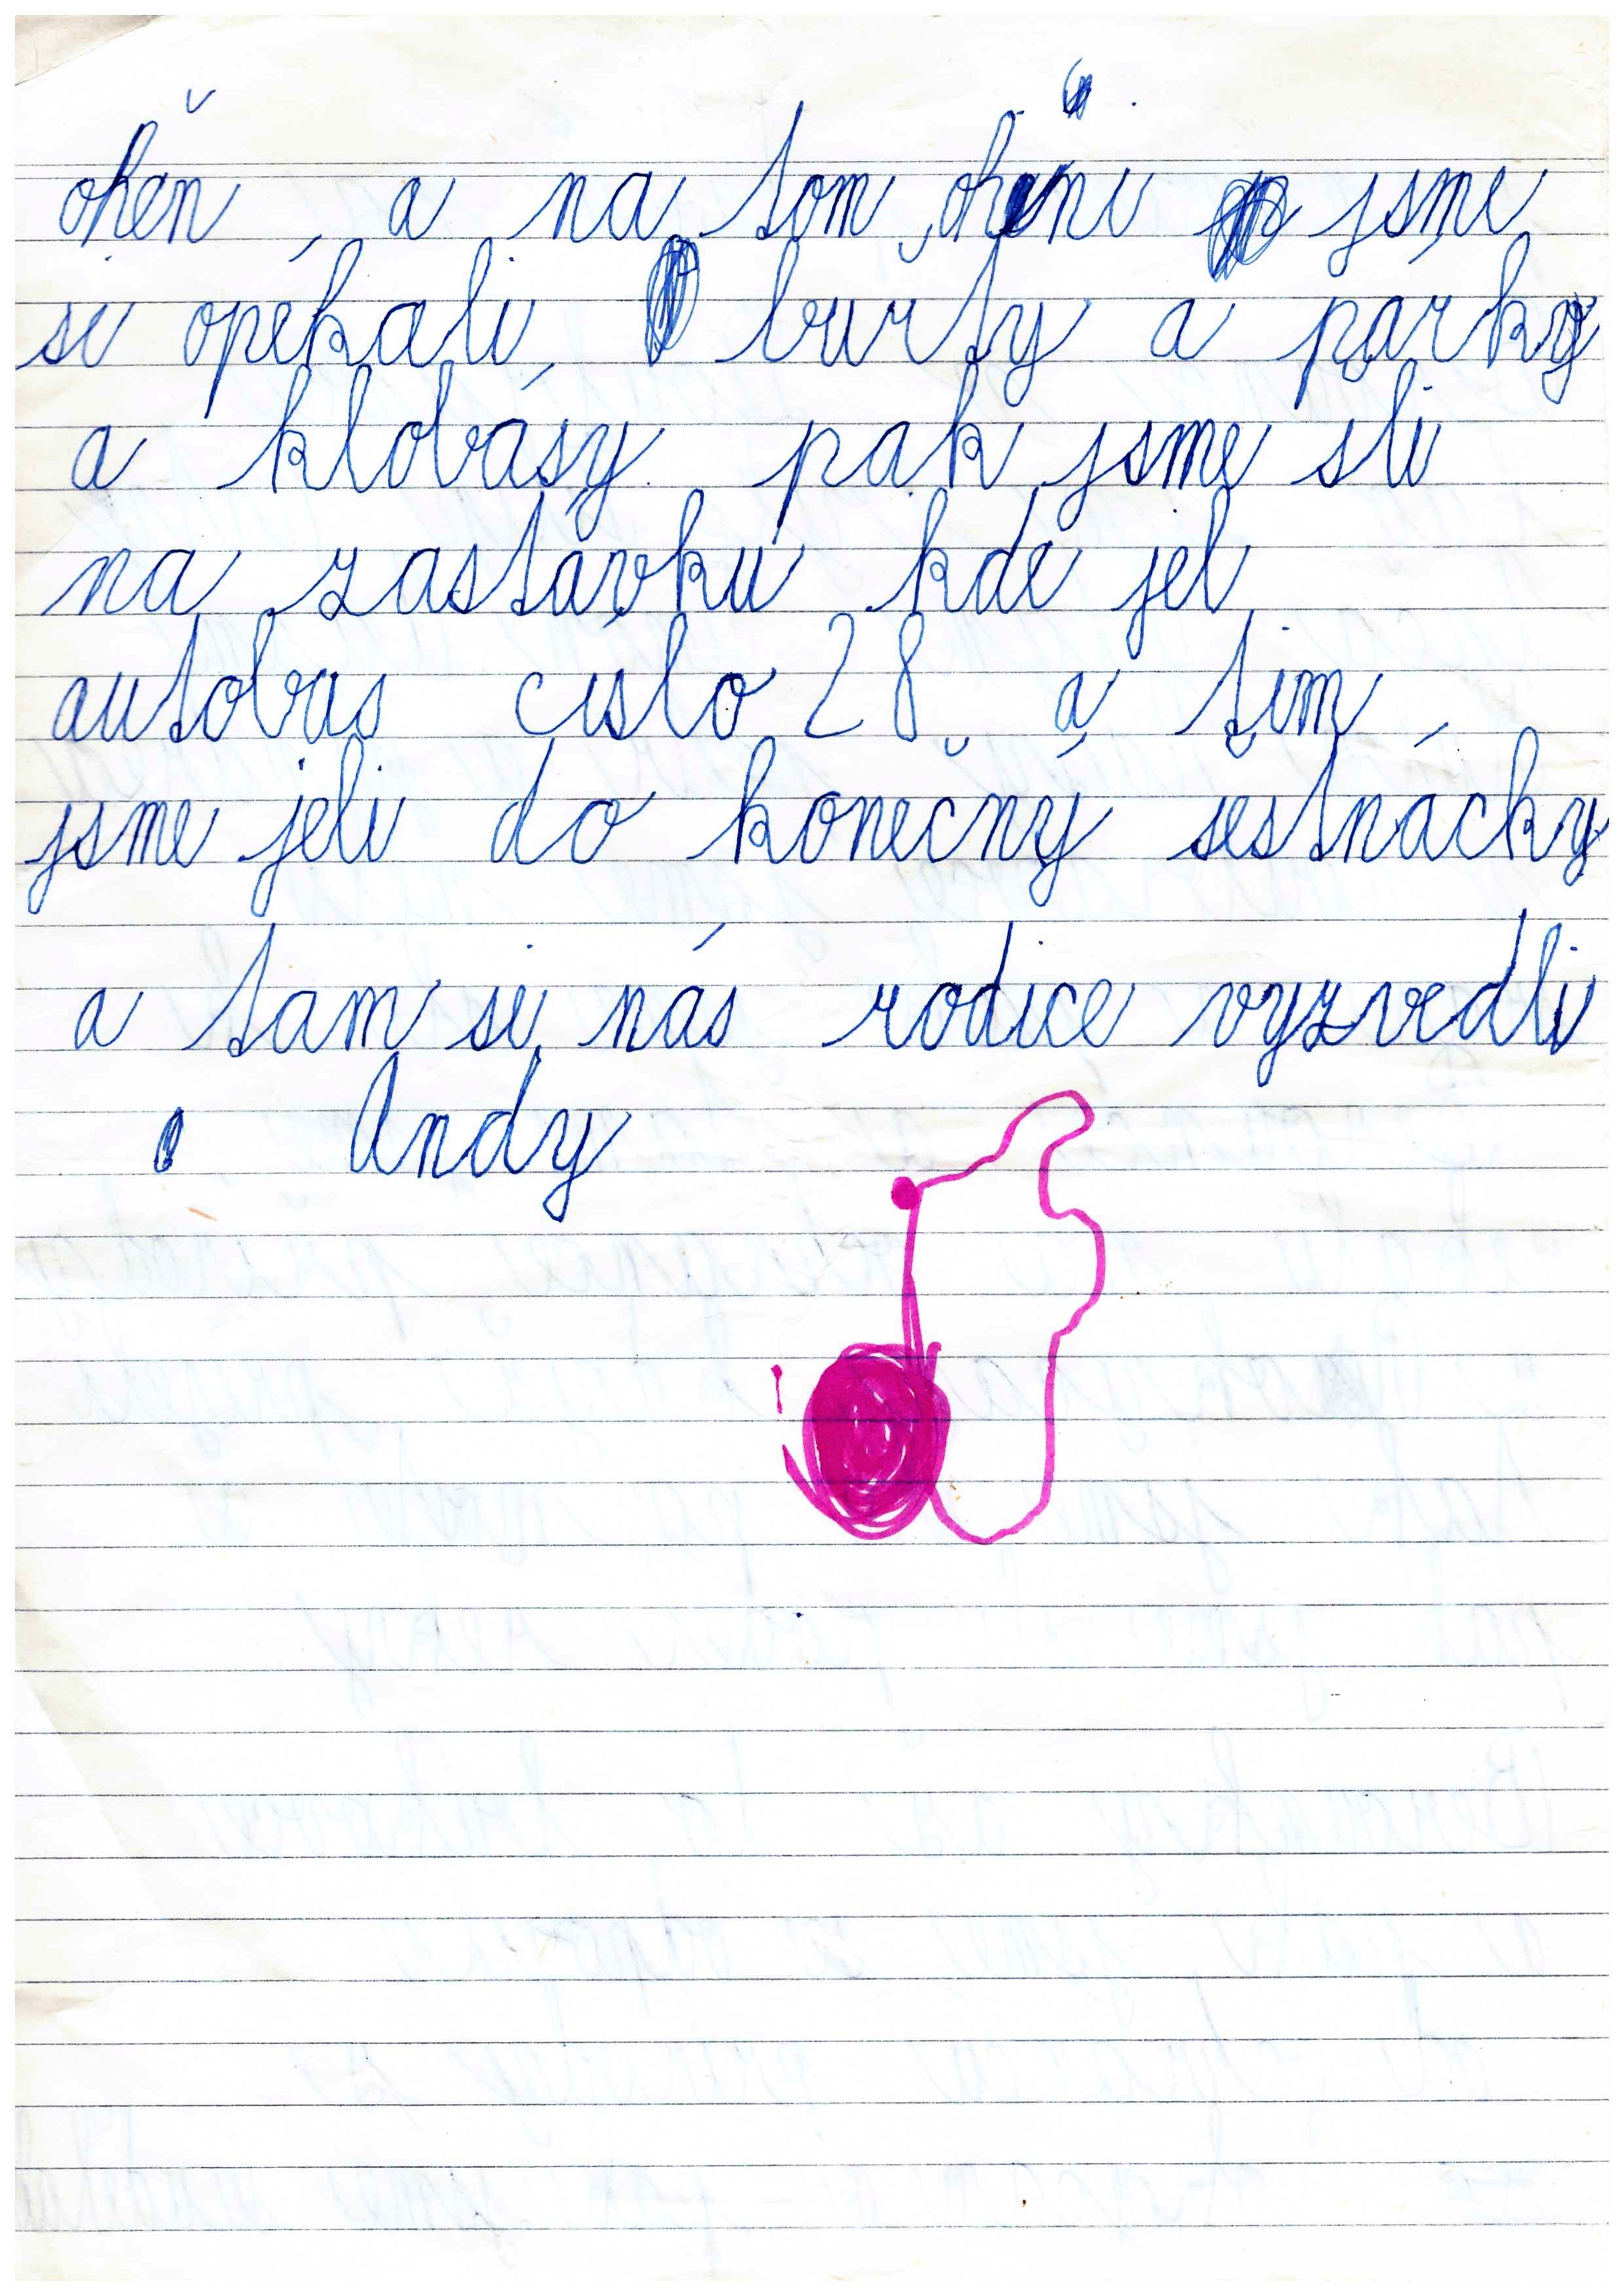 oheň, a na tom ohni jsme
si opékali, burty a párky
a klobásy. pak jsme sli
na zastávku kde jel
autobus cislo 28 a tím
jsme jeli do konečný sestnácky
a tam si nás rodice vyzvedli
Andy